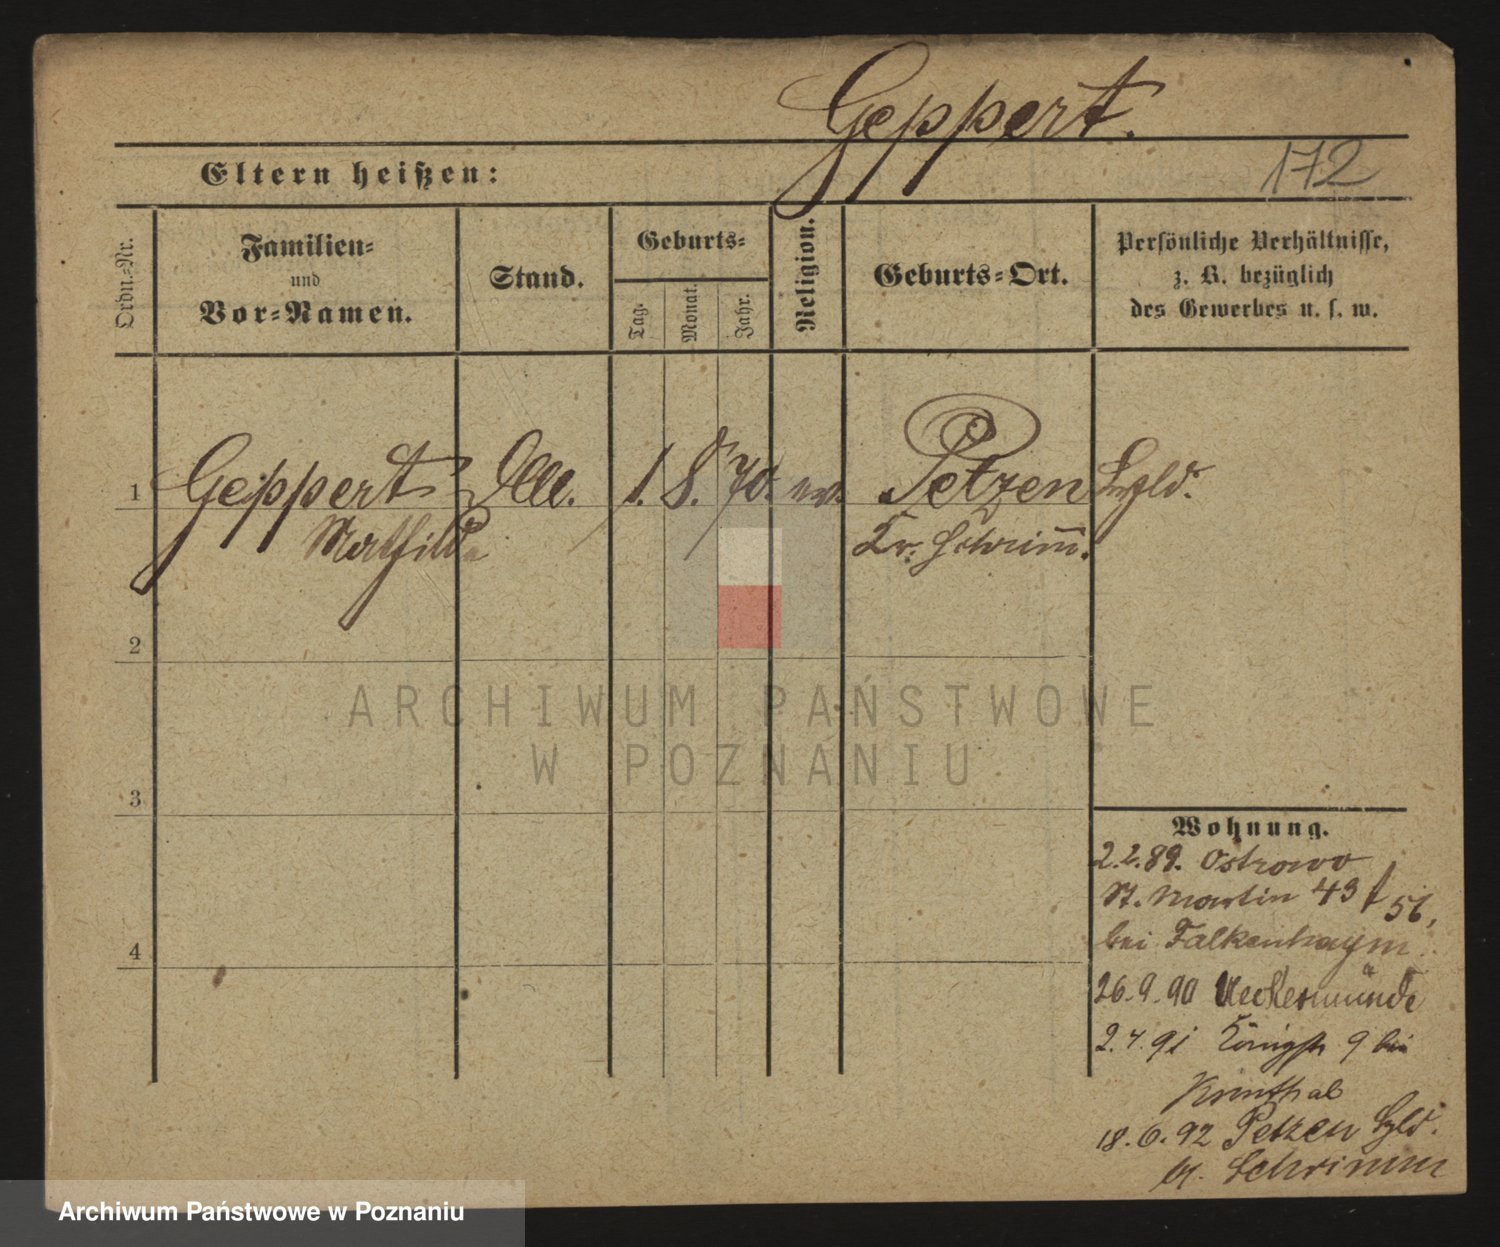 Geppert.
172
Eltern heißen:
Ordn.-Nr.
Familien-
und
Vor-Namen.
Stand.
Geburts-
Tag.
Monat.
Jahr.
Religion.
Geburts-Ort.
Persönliche Verhältnisse,
z. B. bezüglich
des Gewerbes u. s. w.
1 Geppert 1. 8. 70. ev. Petzen
Mathilde Kr. Schrim̄.
2
3
4
Wohnung.
2.2.89. Ostrowo
St. Martin 43 56,
bei Falkenhaym
26.9.90 Ueckermünde
2.4.91 Königstr 9 bei
18.6.92 Petzen
Schrimm
ARCHIWUM PAŃSTWOWE
W POZNANIU
Archiwum Państwowe w Poznaniu